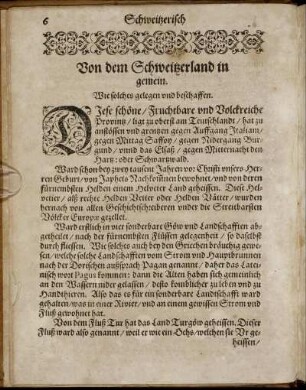 6 Schweitzerisch
Von dem Schweitzerland in
gemein.
Wie solches gelegen vnd beschaffen.
DIese schöne/ Fruchtbare vnd Volckreiche
Provintz/ ligt zu oberst am Teutschlandt/ hat zu
anstössen vnd grentzen gegen Auffgang Italiam/
gegen Mittag Saffoy/ gegen Nidergang Bur-
gund/ vnnd das Elsäß/ gegen Mitternacht den
Hartz: oder Schwartzwald.
Ward schon bey zwey tausent Jahren vor Christi vnsers Her-
ren Geburt/ von Japhets Nachkömlingen bewohnet/ vnd von deren
fürnembsten Helden einem Helvetier Land geheissen. Diese Hel-
vetier/ alß rechte Helden Vetter oder Helden Vätter/ wurden
hernach von allen Geschichtschreibern vnder die Streitbarsten
Völcker Europæ gezellet.
Ward erstlich in vier sonderbare Gäw vnd Landschafften ab-
getheilet/ nach der fürnembsten Flüssen gelegenheit/ so daselbst
durch fliessen. Wie solches auch bey den Griechen bräuchig gewe-
sen/ welche solche Landschafften vom Strom vnd Hauptbrunnen
nach der Dorischen außsprach Pagan genannt/ daher das Latei-
nisch wort Pagus kommen: dann die Alten haben sich gemeinlich
an den Wassern nider gelassen/ desto komblicher zu leben vnd zu
Handthieren. Also das es für ein sonderbare Landschafft ward
gehalten/ was in einer Rivier/ vnd an einem gewissen Strom vnd
Fluß gewohnet hat.
Von dem Fluß Tur hat das Land Turgöw geheissen. Dieser
Fluß ward also genannt/ weil er wie ein Ochs/ welchen sie Vr ge-
heissen/